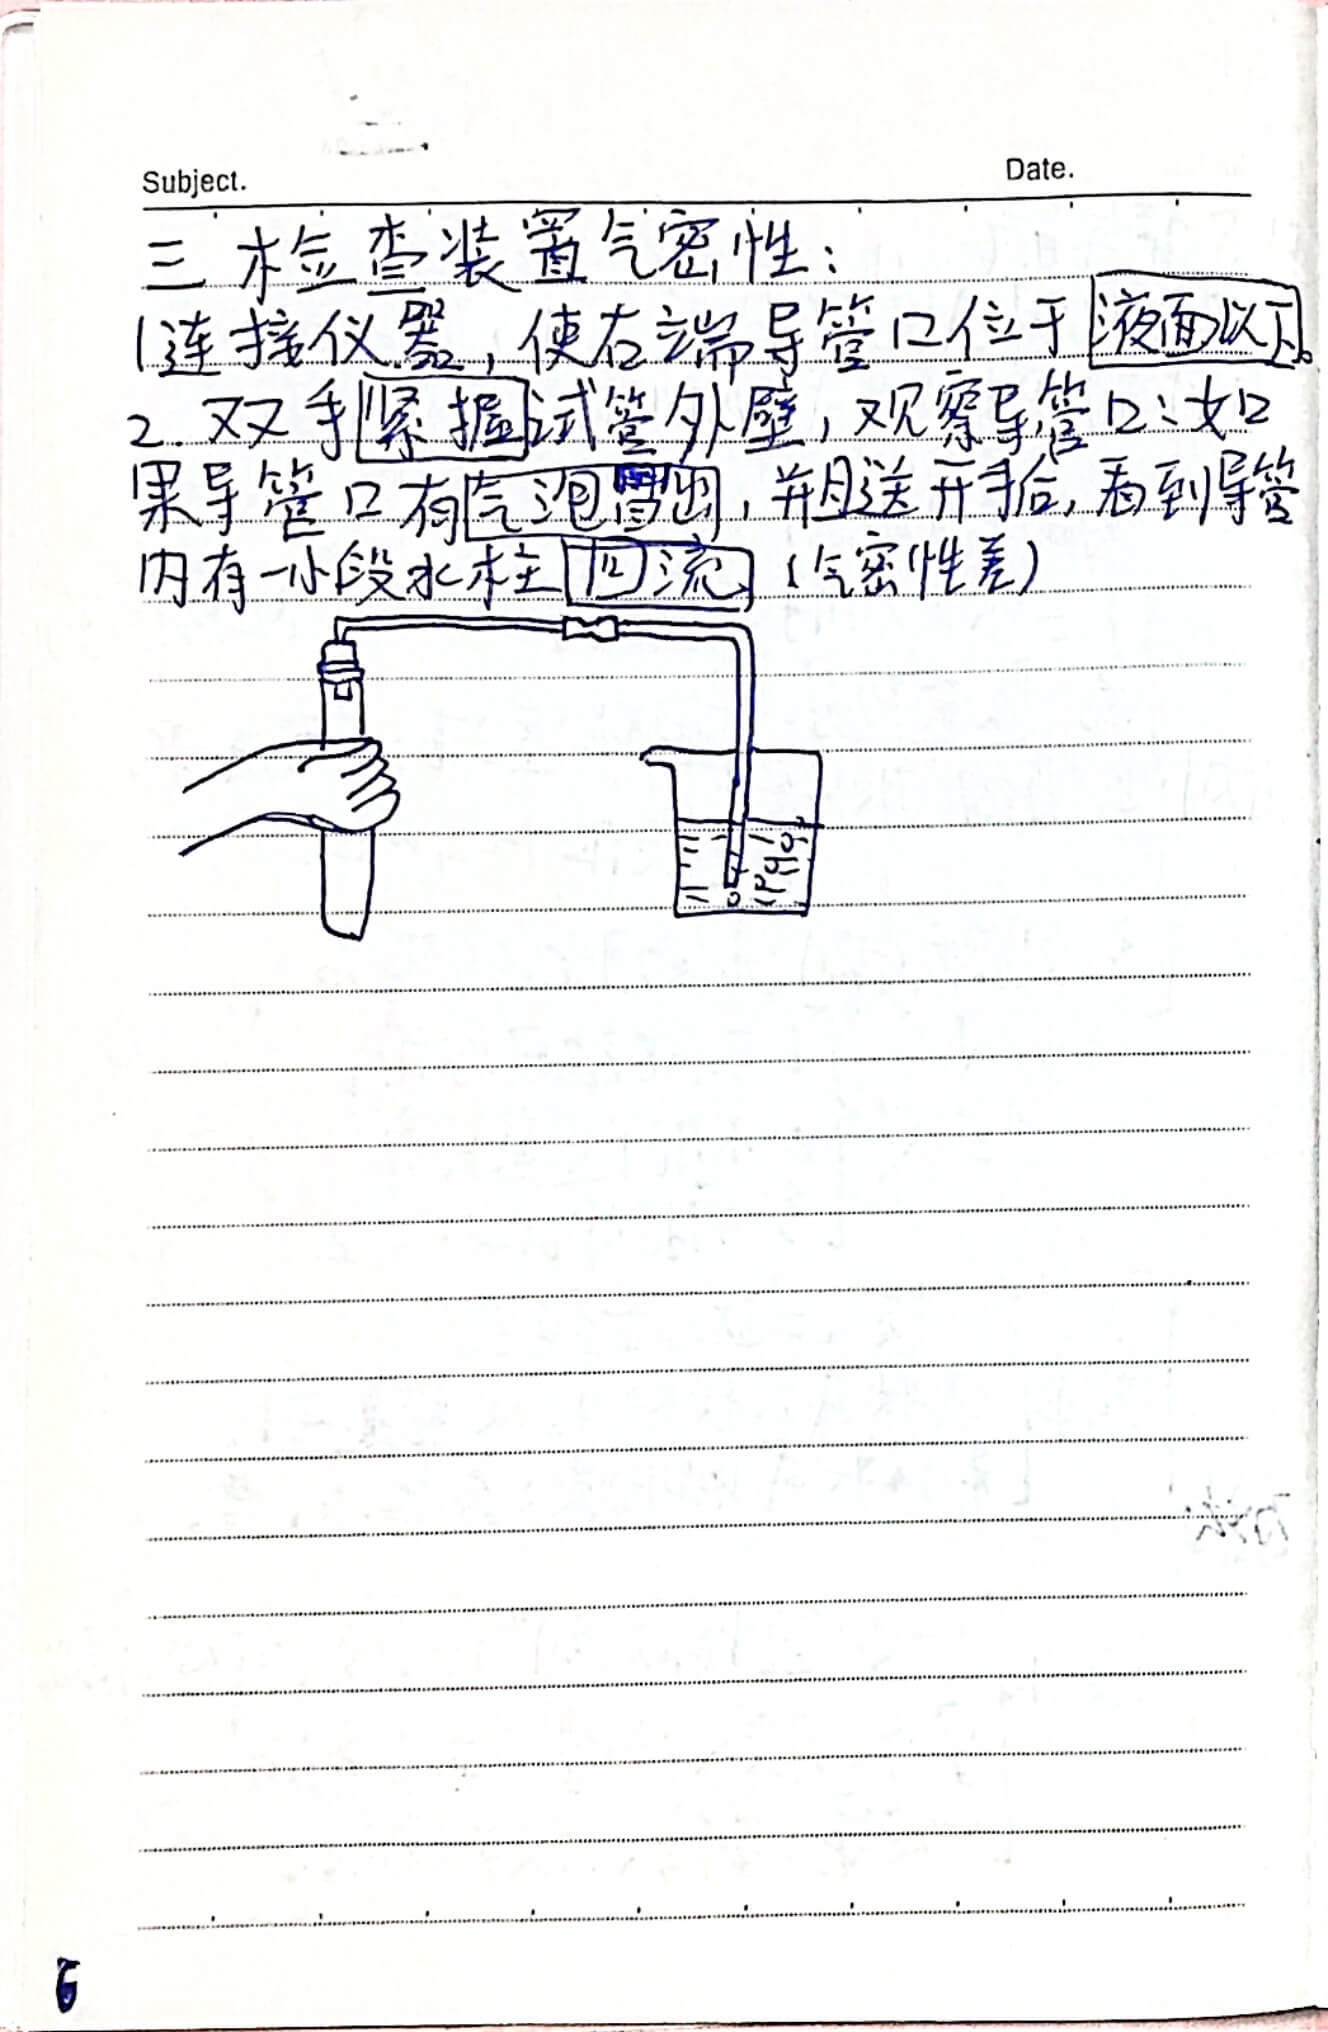 Subject.
Date.
三 检查装置气密性:
1连接仪器,使右端导管口位于液面以下。
2.双手紧握试管外壁,观察导管口:如
果导管口有气泡冒出,并且送开手后,看到导管
内有一小段水柱回流(气密性差)
6